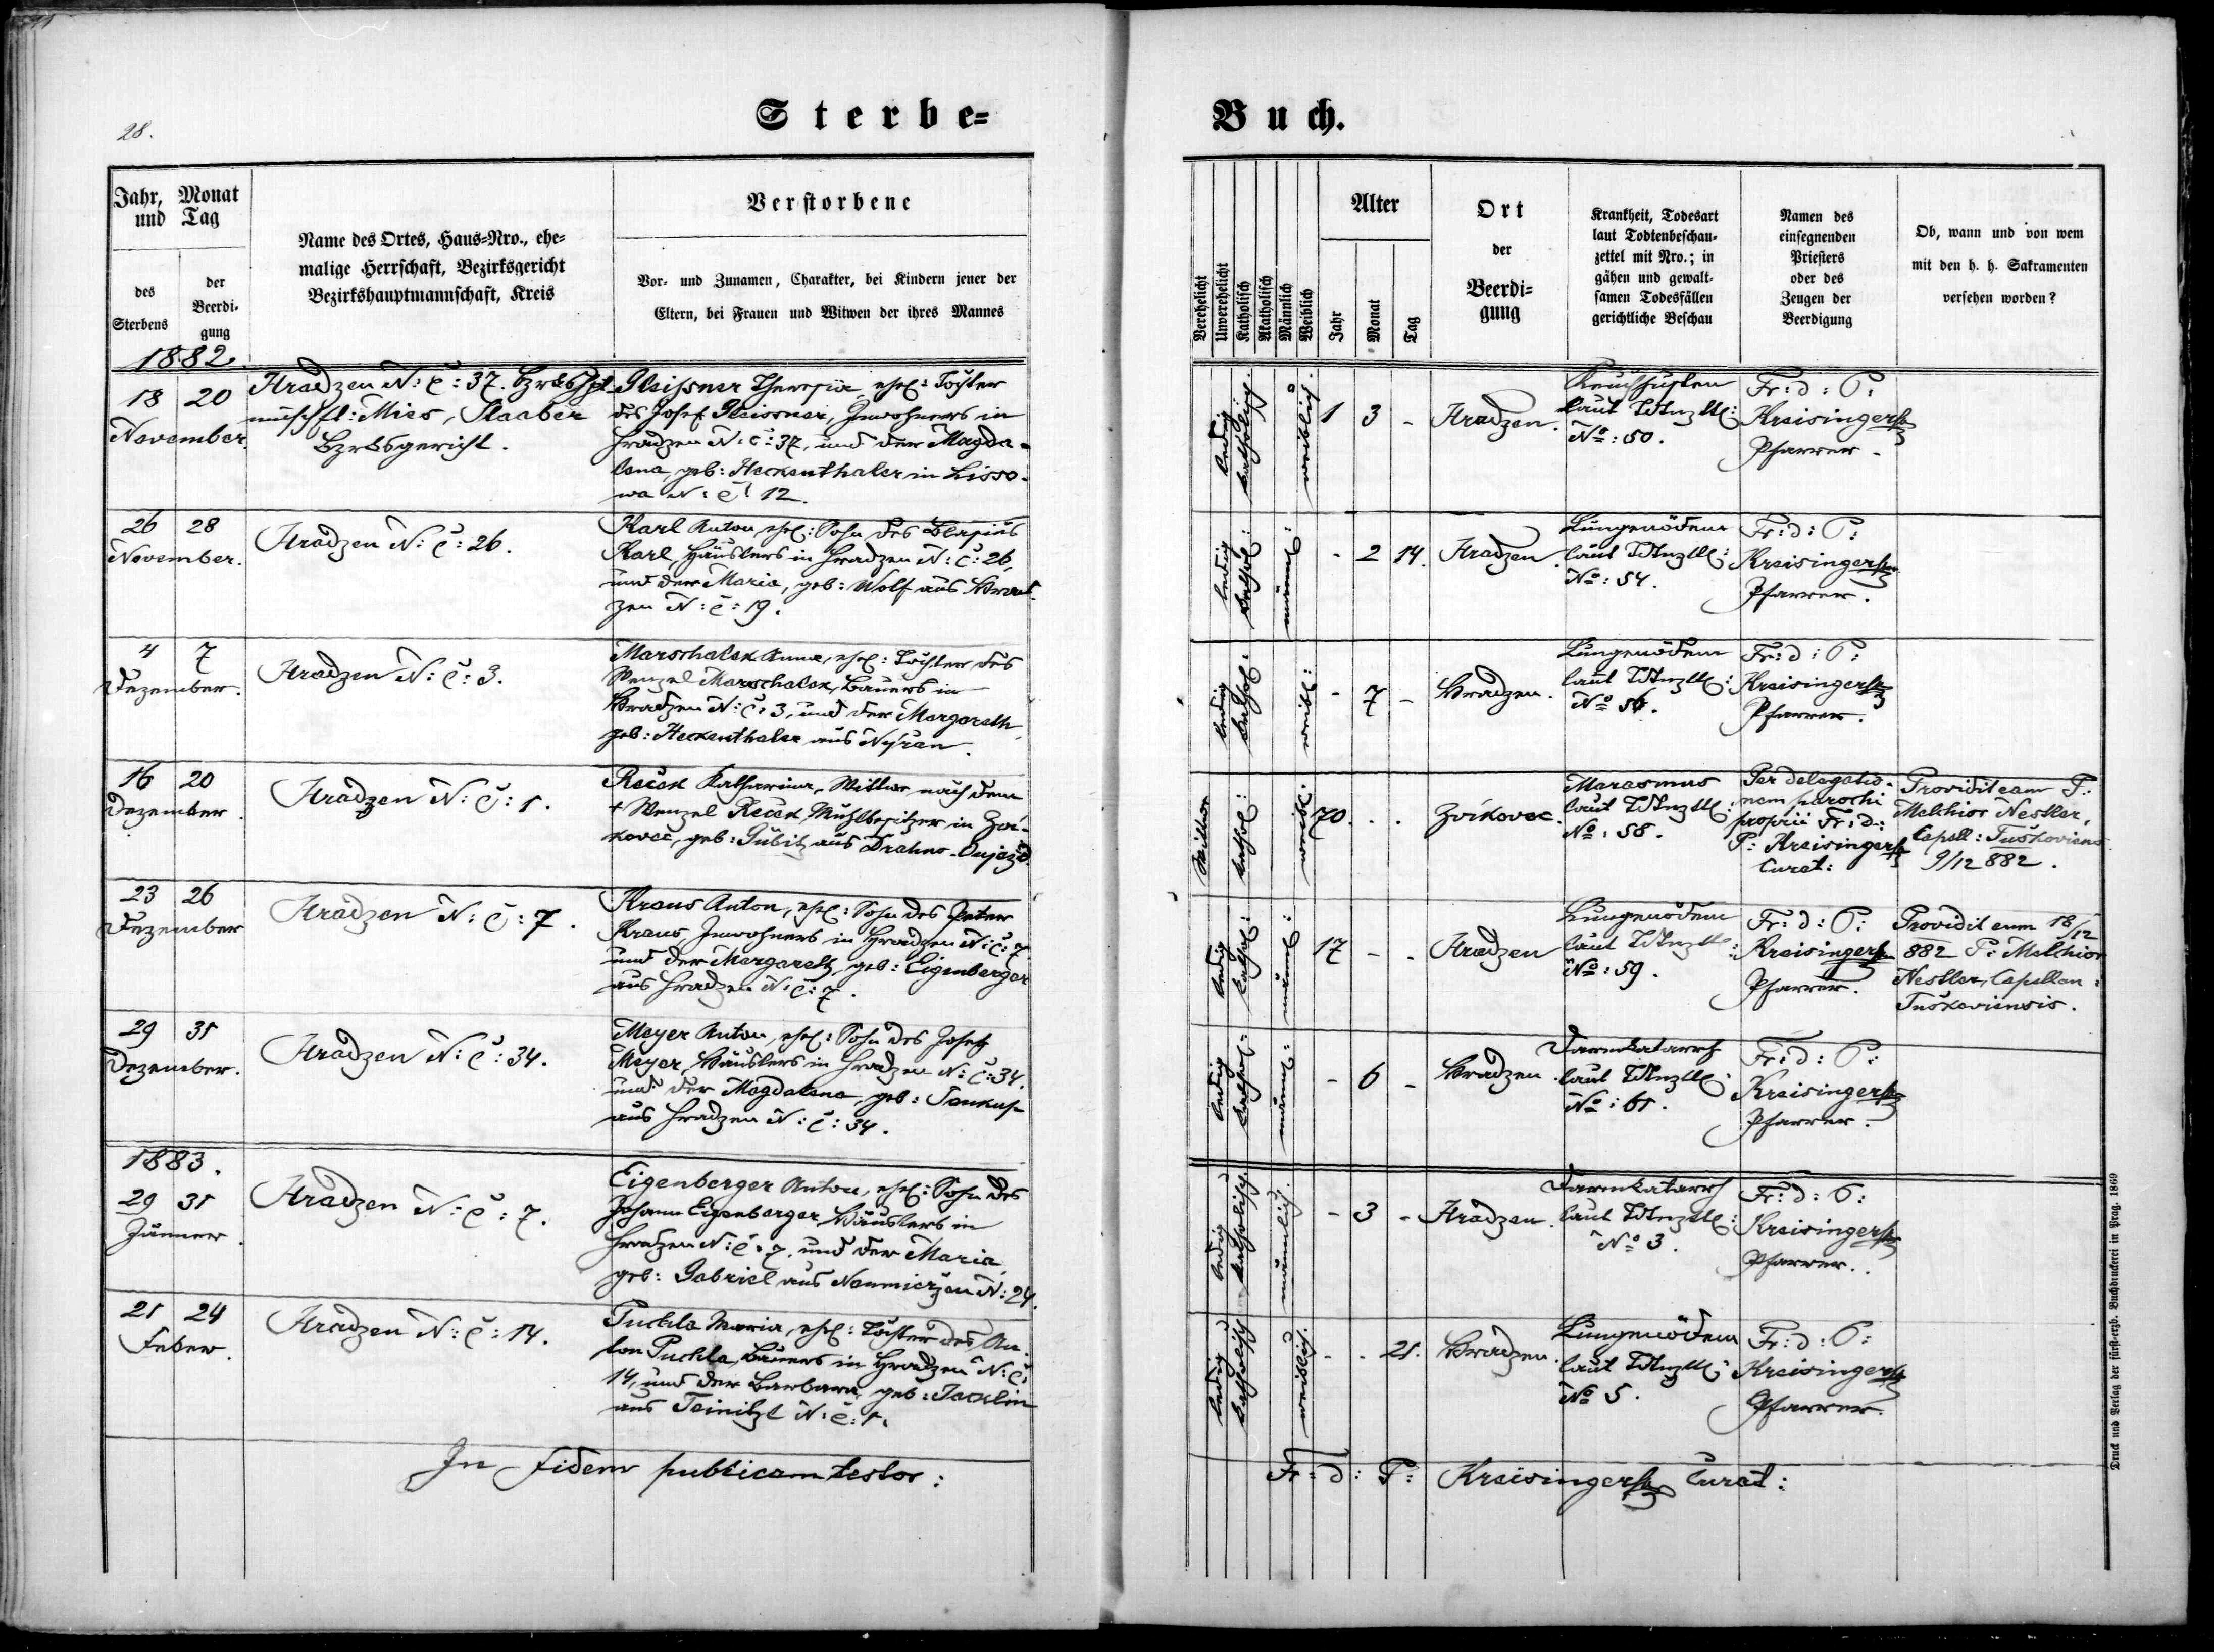 28.
Sterbe=
Buch.
Jahr, Monat
und Tag
des
Sterbens
der
Beerdi-
gung
Name des Ortes, Haus=Nro., ehe=
malige Herrschaft, Bezirksgericht
Bezirkshauptmannschaft, Kreis
Verstorbene
Vor- und Zunamen, Charakter, bei Kindern jener der
Eltern, bei Frauen und Witwen der ihres Mannes
Verehelicht
Unverehelicht
Katholisch
Akatholisch
Männlich
Weiblich
Alter
Jahr
Monat
Tag
Ort
der
Beerdi=
gung
Krankheit, Todesart
laut Todtenbeschau-
zettel mit Nro.; in
gähen und gewalt-
samen Todesfällen
gerichtliche Beschau
Namen des
einsegnenden
Priesters
oder des
Zeugen der
Beerdigung
Ob, wann und von wem
mit den h. h. Sakramenten
versehen worden?
1882.
18 20
November.
Hradzen N: C: 37. Bzrkshpt
mschft: Mies, Staaber
Bzrksgericht.
Gleissner Theresia, ehel: Tochter
des Josef Gleissner, Inwohners in
Hradzen N: C: 37, und der Magda-
lena, geb: Heckenthaler in Lisso-
wa N: C: 12.
ledig
katholisch.
weiblich.
1 3 -
Hradzen.
Keuchhusten
laut Tdtnzttl:
No: 50.
Fr: d: P:
Kreisinger
Pfarrer.
26 28
November.
Hradzen N: C: 26.
Karl Anton, ehel: Sohn des Blasius
Karl, Häuslers in Hradzen N: C: 26,
und der Maria, geb: Wolf aus Hrad-
zen N: C: 19.
ledig
kathol:
männl:
- 2 14.
Hradzen.
Lungenödem
laut Tdtnzttl:
No: 54.
Fr: d: P:
Kreisinger
Pfarrer.
4 7
Dezember.
Hradzen N: C: 3.
Marschalek Anna, ehel: Tochter des
Wenzel Marschalek, Bauers in
Hradzen N: C: 3, und der Margareth,
geb: Heckenthaler aus Nýřan.
ledig
kathol:
weibl:
- 7 -
Hradzen.
Lungenödem
laut Tdtnzttl:
No 56.
Fr: d: P:
Kreisinger
Pfarrer.
16 20
Dezember.
Hradzen N: C: 1.
Reček Katharina, Wittwe nach dem
+ Wenzel Reček, Mühlbesitzer in Zví-
kovec, geb: Gubitz aus Drahno-Oujezd.
Wittwe
kathol:
weibl:
70. . .
Zvíkovec.
Marasmus
laut Tdtnzttl:
No: 58.
Per delegatio-
nem parochi
proprii Fr: d:
P: Kreisinger
Curat:
Providit eam P:
Melchior Nestler,
Capell: Tuškoviens
9/12 882.
23 26
Dezember
Hradzen N: C: 7.
Kraus Anton, ehel: Sohn des Peter
Kraus Inwohners in Hradzen N: C: 7
und der Margareth, geb: Eigenberger
aus Hradzen N: C: 7.
ledig
kathol:
männl:
17 - -
Hradzen
Lungenödem
laut Tdtnzttl:
No: 59.
Fr: d: P:
Kreisinger
Pfarrer.
Providit eum 18/12
882 P: Melchior
Nestler, Capellan:
Tuškoviensis.
29 31
Dezember.
Hradzen N: C: 34.
Meyer Anton, ehel: Sohn des Josef
Meyer, Häuslers in Hradzen N: C: 34.
und der Magdalena, geb:
aus Hradzen N: C: 34.
ledig
kathol:
männl:
- 6 -
Hradzen.
Darmkatarrh
laut Tdtnzttl:
No: 61.
Fr: d: P:
Kreisinger
Pfarrer.
1883.
29 31
Jänner.
Hradzen N: C: 7.
Eigenberger Anton, ehel: Sohn des
Johann Eigenberger, Häuslers in
Hradzen N: C: 7, und der Maria,
geb: Gabriel aus Naumierzen N: 24.
ledig
katholisch.
männlich.
- 3 -
Hradzen.
Darmkatarrh
laut Tdtnzttl:
No 3.
Fr: d: P:
Kreisinger
Pfarrer.
21 24
Feber.
Hradzen N: C: 14.
Puchla Maria, ehel: Tochter des An-
ton Puchla, Bauers in Hradzen N: C:
14, und der Barbara, geb: Jacklin
aus Teinitzl N: C: 1.
ledig
katholisch
weiblich.
- - 21.
Hradzen.
Lungenödem
laut Tdtnzttl:
No 5.
Fr: d: P:
Kreisinger
Pfarrer.
In fidem publicam testor:
Fr: d: P: Kreisinger Curat:
Druck und Verlag der fürst-erzb. Buchdruckerei in Prag. 1869